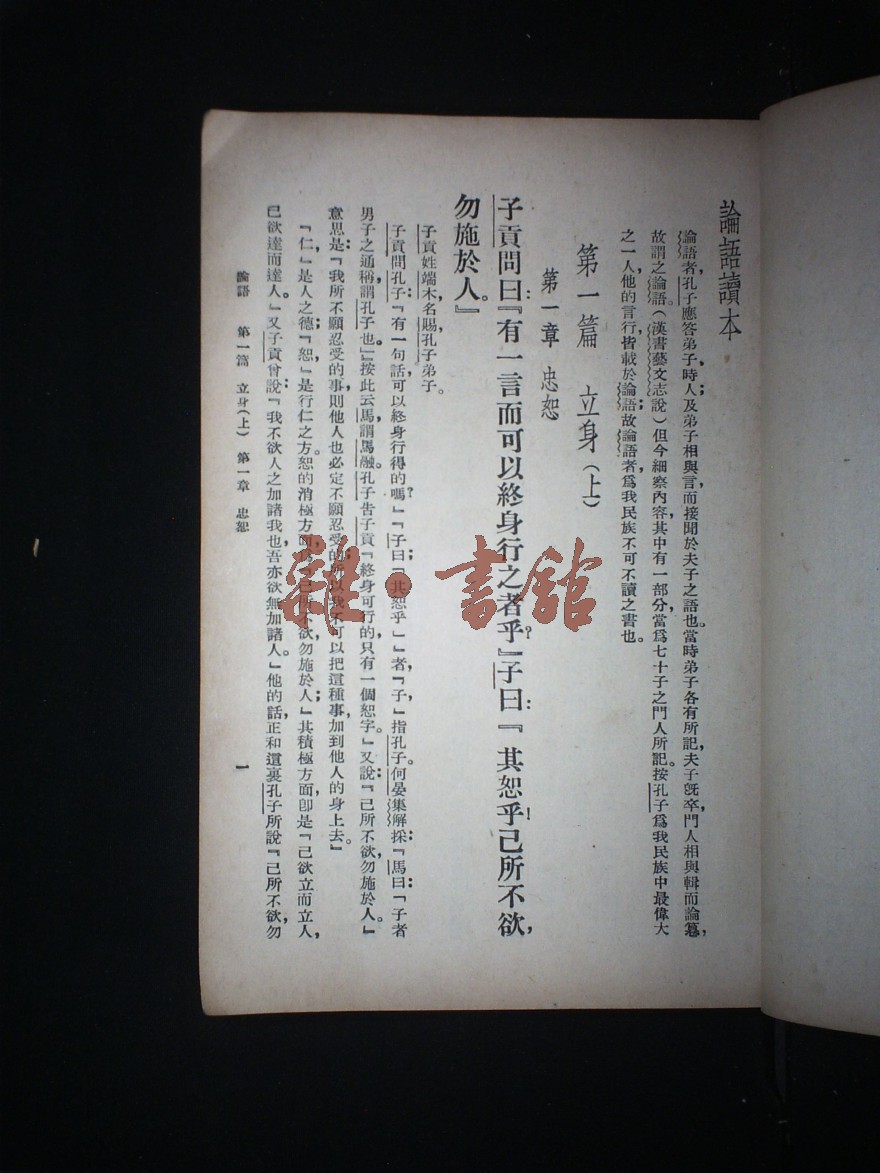 論語讀本
論語者,孔子應答弟子、時人及弟子相與言,而接聞於夫子之語也。當時弟子各有所記,夫子旣卒,門人相與輯而論篹,
故謂之論語。(漢書藝文志說)但今細察內容,其中有一部分當爲七十子之門人所記。按孔子爲我民族中最偉大
之一人,他的言行,皆載於論語;故論語者,爲我民族不可不讀之書也。
第一篇 立身(上)
第一章 忠恕
子貢問曰:『有一言而可以終身行之者乎?』子曰:『其恕乎!己所不欲,
勿施於人。』
子貢姓端木,名賜,孔子弟子。
子貢問孔子:『有一句話可以終身行得的嗎?』『子曰「其恕乎」』者,「子」指孔子。何晏集解採:『馬曰:「子者,
男子之通稱,謂孔子也」』。按此云馬,謂馬融。孔子告子貢『終身可行的,只有一個恕字。』又說:『己所不欲,勿施於人。』
意思是:『我所不願忍受的事,則他人也必定不願忍受的,所以我不可以把這種事加到他人的身上去。』
『仁,』是人之德;『恕,』是行仁之方。恕的消極方面,爲『己所不欲,勿施於人;』其積極方面,卽是『己欲立而立人,
己欲達而達人。』又子貢曾說:『我不欲人之加諸我也,吾亦欲無加諸人。』他的話正和這裏孔子所說『己所不欲,勿
論語 第一篇 立身(上) 第一章 忠恕 一
雜·書館